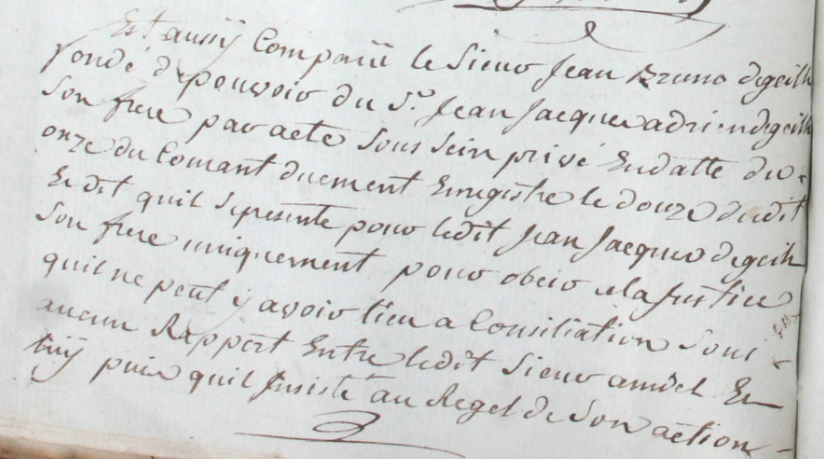 Est aussy Comparu le Sieur Jean Bruno degeilh
fondé de pouvoir du Sr. Jean Jacques adrien degeilh
Son frere par acte Sous Sein privé En datte du
onze du Courant duement Enregistre le douze dudit
Et dit quil Se presente pour ledit Jean Jacques degeilh
Son frere uniquement pour obeir ala Justice
quil ne peut y avoir lieu a Consiliation Sous
aucun Rapport Entre ledit Sieur amiel Et
luy puis quil Insiste au Rejet de Son action